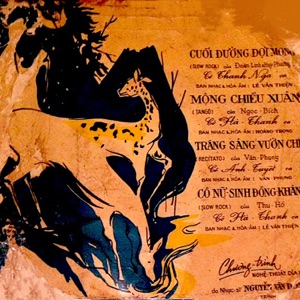 CUỐI ĐƯỜNG ĐỢI MONG
(SLOW ROCK) của Đoàn
Cô Thanh Nga ca
BAN NHẠC & HÒA ÂM : LÊ VĂN THIỆN
MỘNG CHIỀU XUÂN
(TANGO) của Ngọc-Bích
Cô Hà-Thanh ca
BAN NHẠC & HÒA ÂM : HOÀNG TRỌNG
TRĂNG SÁNG VƯỜN CHÈ
(RECITATO) của Văn-Phụng
Cô Ánh-Tuyết ca
BAN NHẠC & HÒA ÂM : VĂN PHỤNG
CÔ NỮ SINH ĐỒNG KHÁNH
(SLOW ROCK) của Thu-Hồ
Cô Hà-Thanh ca
BAN NHẠC & HÒA ÂM : LÊ VĂN THIỆN
Chương-trình
NGHỆ-THUẬT
do Nhạc-sĩ NGUYỄN VĂN